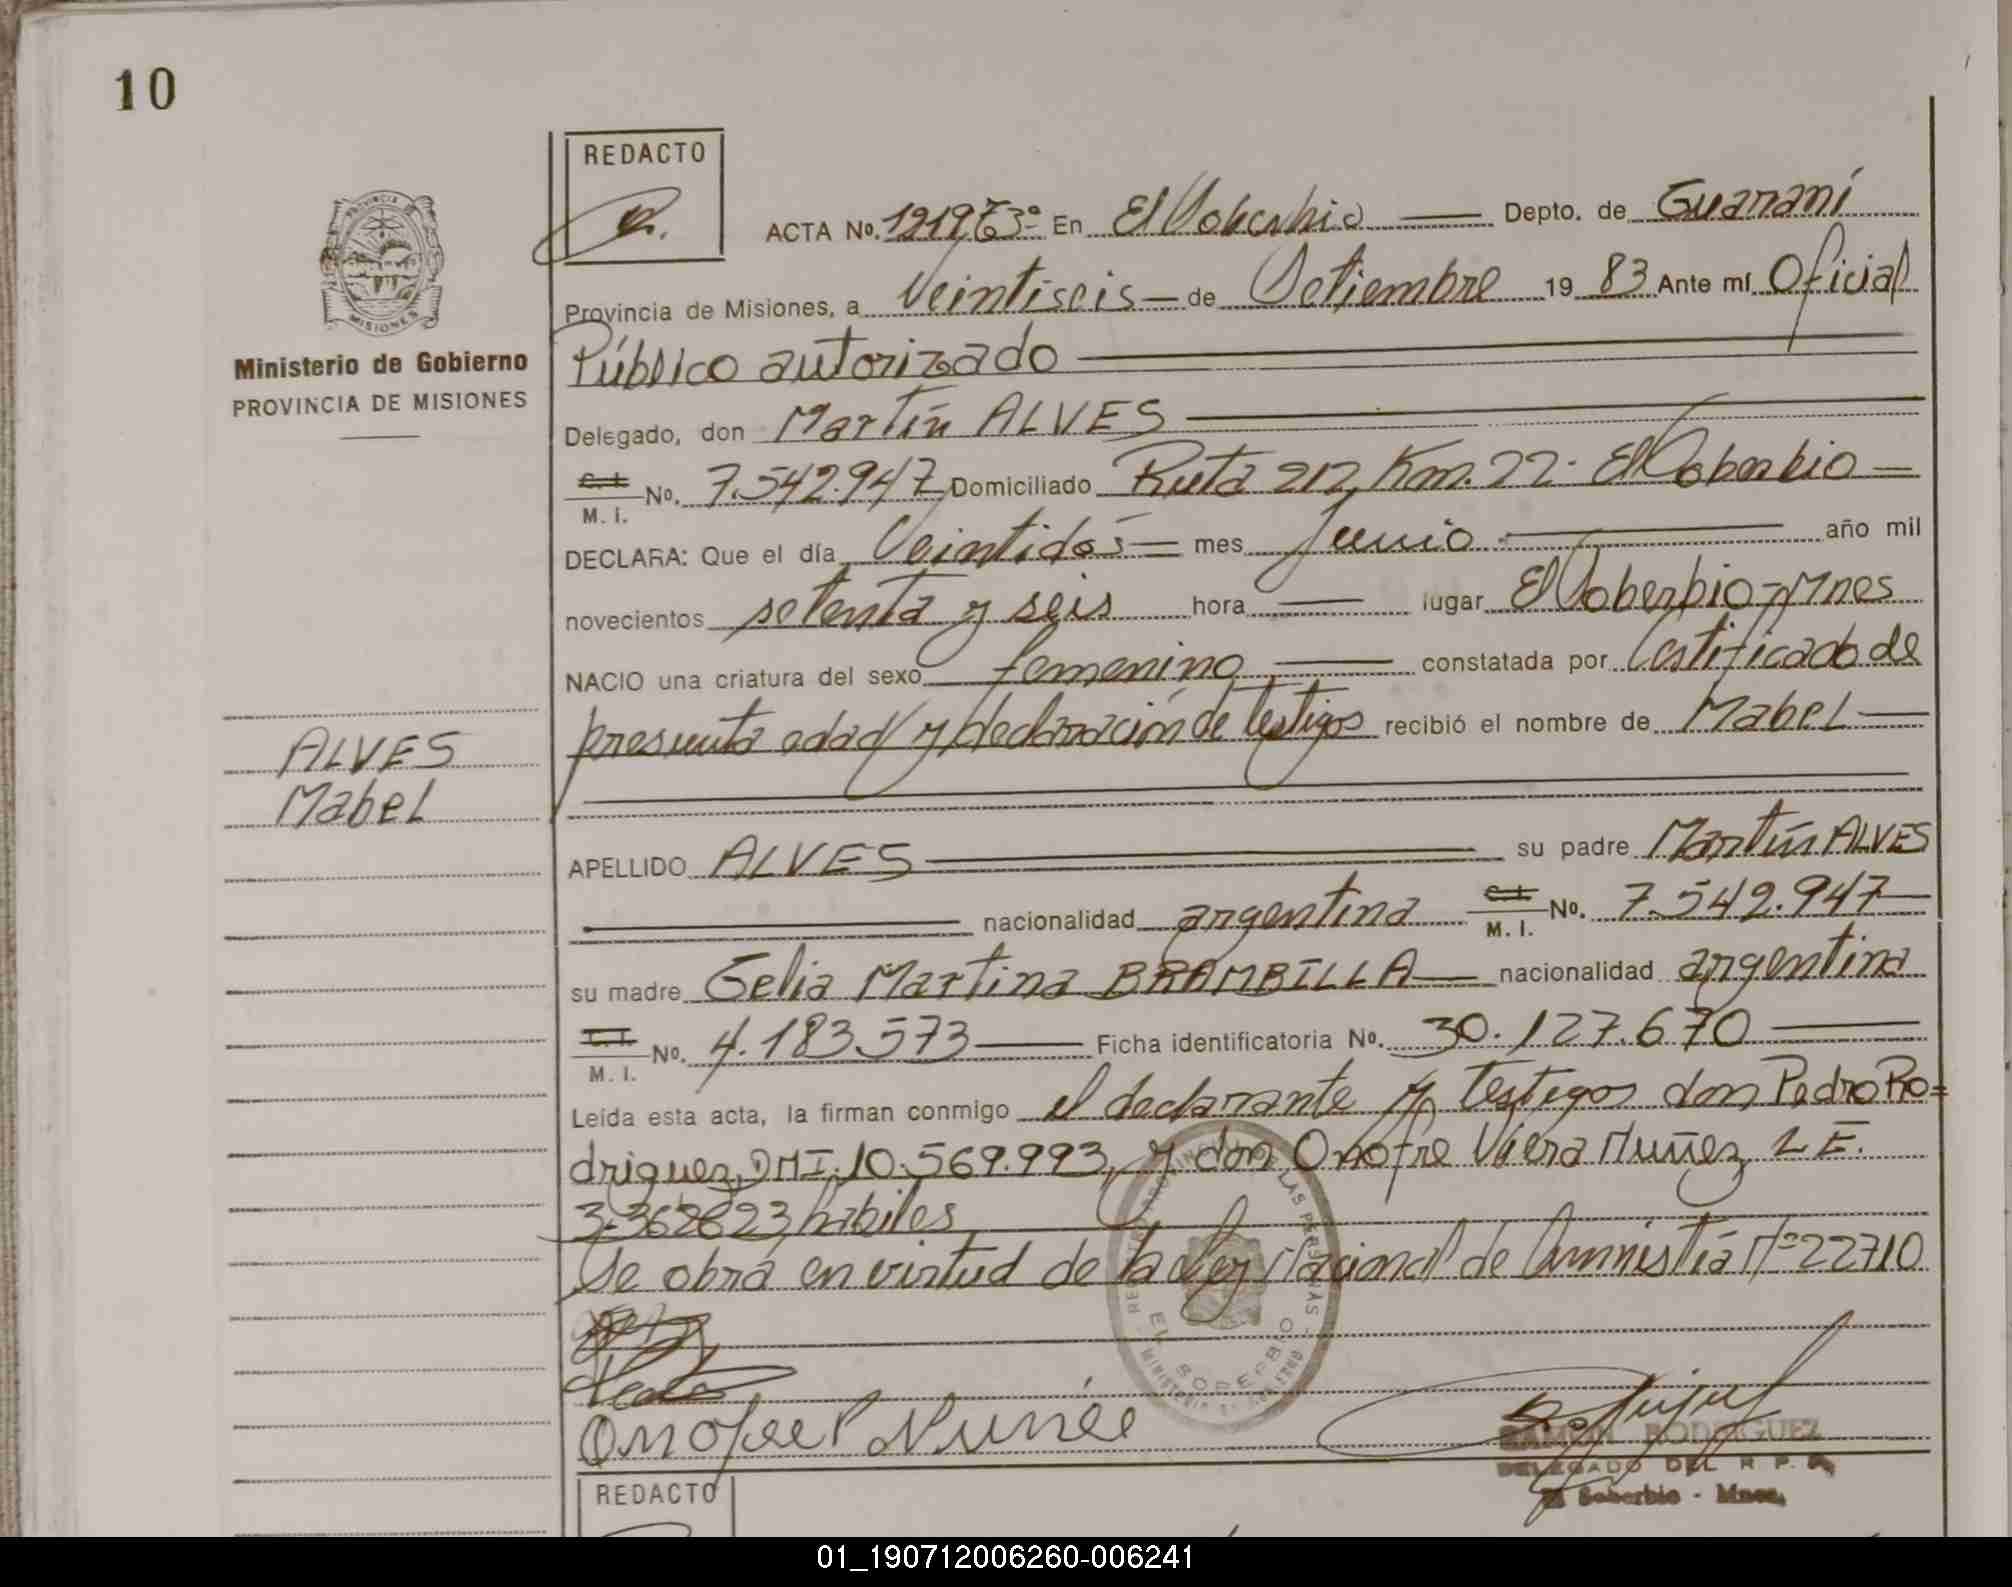 10
REDACTO
ACTA No. En El Soberbio Depto. de Guaraní
Provincia de Misiones, a Veintiseis de Setiembre 19 83 Ante mí Oficial
Público autorizado
Delegado, don Martín ALVES
C. I. M. I. No. 7.542.947 Domiciliado Ruta 212, Km. 22 - El Soberbio
DECLARA: Que el día Veintidós mes Junio año mil
novecientos setenta y seis hora lugar El Soberbio - Mnes
NACIO una criatura del sexo femenino constatada por Certificado de
presunta edad y declaración de testigos recibió el nombre de Mabel
APELLIDO ALVES su padre Martín ALVES
nacionalidad argentina C. I. M. I. No. 7.542.947
su madre Celia Martina BRAMBILLA nacionalidad argentina
C. I. M. I. No. 4.183.573 Ficha identificatoria No. 30.127.670
Leída esta acta, la firman conmigo el declarante y testigos don Pedro Ro=
driguez, DMI. 10.569.993, y don Onofre Viera Nuñez L E.
hábiles
Se obra en virtud de la Ley Nacional de Amnistiá Nº 22710
Nunée
RAMON RODRIGUEZ
DELEGADO DEL R. P. P.
El Soberbio - Mnes.
PROVINCIA DE
MISIONES
Ministerio de Gobierno
PROVINCIA DE MISIONES
ALVES
Mabel
REGISTRO PROVINCIAL DE LAS PERSONAS
EL SOBERBIO
MINISTERIO DE GOBIERNO
REDACTO
01_190712006260-006241